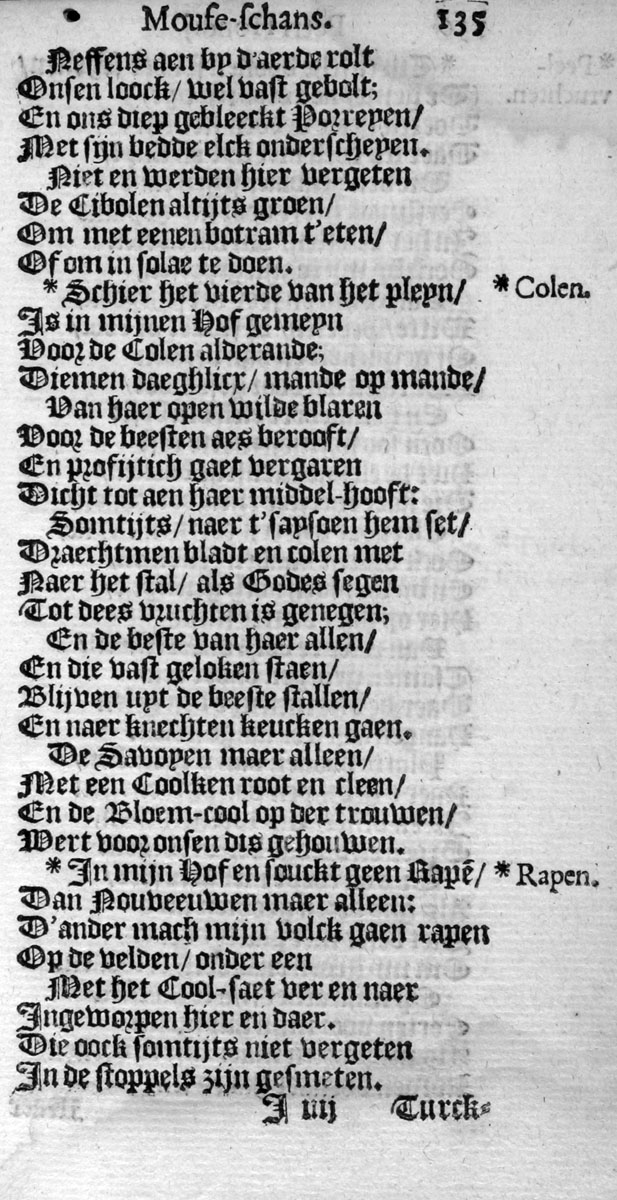 Mouse-schans. 135
Neffens aen by d'aerde rolt
Onsen loock/ wel vast gebolt;
En ons diep gebleeckt Porreyen/
Met sijn bedde elck onderscheyen.
Niet en werden hier vergeten
De Cibolen altijts groen/
Om met eenen botram t'eten/
Of om in solae te doen.
* Schier het vierde van het pleyn/ * Colen.
Is in mijnen Hof gemeyn
Voor de Colen alderande;
Diemen daeghlicx/ mande op mande/
Van haer open wilde blaren
Voor de beesten aes berooft/
En profijtich gaet vergaren
Dicht tot aen haer middel-hooft:
Somtijts/ naer t'saysoen hem set/
Draechtmen bladt en colen met
Naer het stal/ als Godes segen
Tot dees vruchten is genegen;
En de beste van haer allen/
En die vast geloken staen/
Blijven uyt de beeste stallen/
En naer knechten keucken gaen.
De Savoyen maer alleen/
Met een Coolken root en cleen/
En de Bloem-cool op der trouwen/
Wert voor onsen dis gehouwen.
* In mijn Hof en souckt geen Rapē/ * Rapen.
Dan Nouveeuwen maer alleen:
D'ander mach mijn volck gaen rapen
Op de velden/ onder een
Met het Cool-saet ver en naer
Ingeworpen hier en daer.
Die oock somtijts niet vergeten
In de stoppels zijn gesmeten.
I iiij Turck-